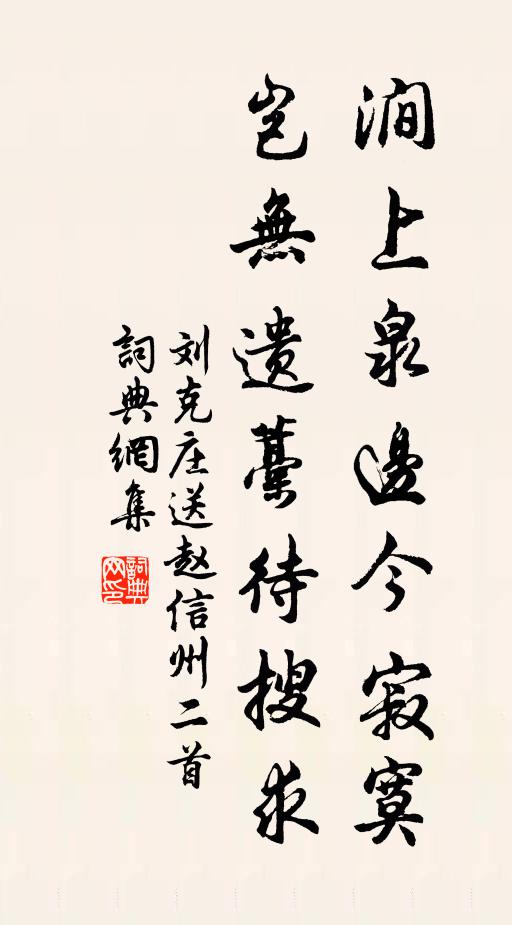 澗上泉邊今寂寞
豈無遺藁待搜求
刘克庄送赵信州二首
詞典網集
詞典网印